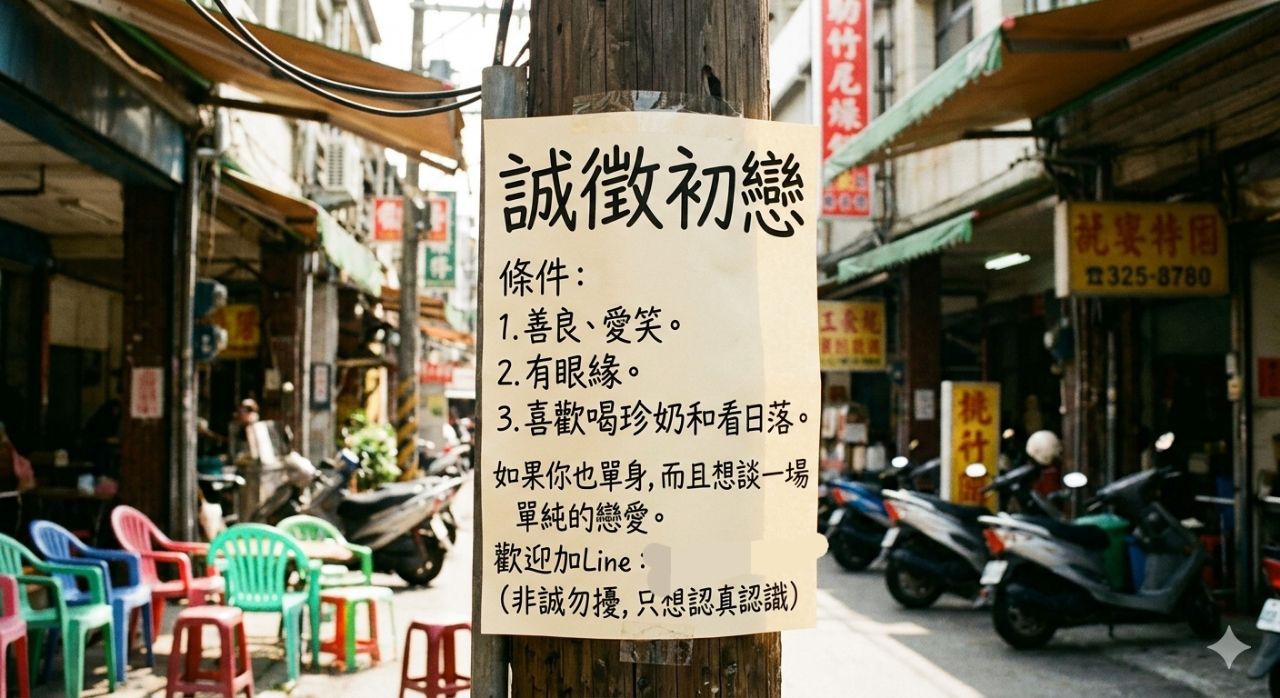 誠徵初戀
條件：
1. 善良、愛笑。
2. 有眼緣。
3. 喜歡喝珍奶和看日落。
如果你也單身, 而且想談一場
單純的戀愛。
歡迎加Line：
（非誠勿擾, 只想認真認識）
325-8780